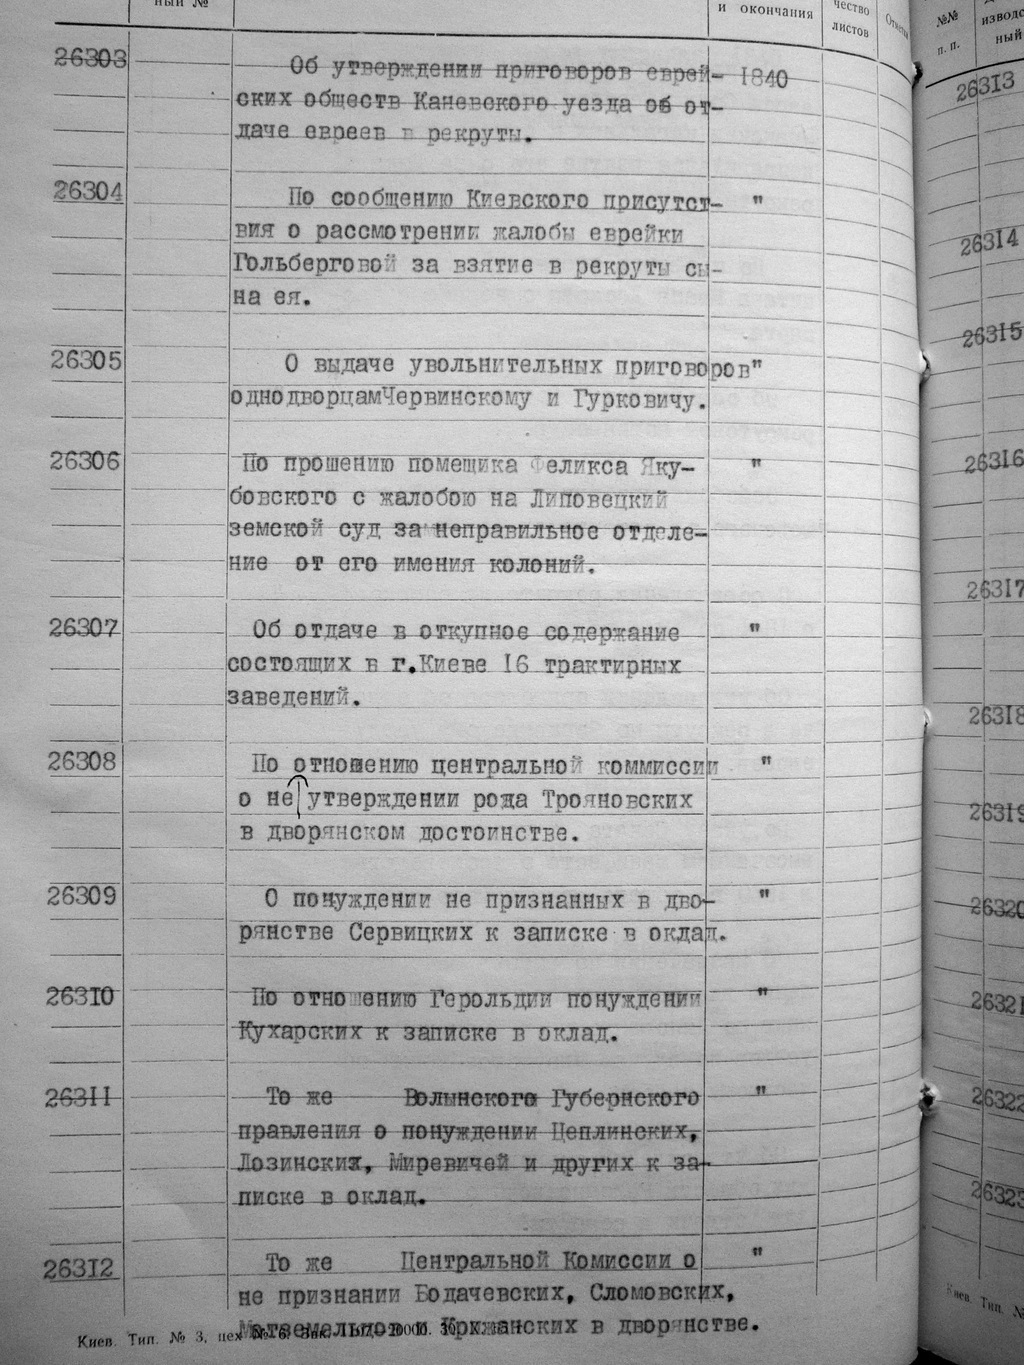 ный №
и окончания
чество
листов
26303
Об утверждении приговоров еврей- 1840
ских обществ Каневского уезда об от-
даче евреев в рекруты.
26304
По сообщению Киевского присутст- "
вия о рассмотрении жалобы еврейки
Гольберговой за взятие в рекруты сы-
на ея.
26305
О выдаче увольнительных приговоров"
однодворцамЧервинскому и Гурковичу.
26306
По прошению помещика Феликса Яку- "
бовского с жалобою на Липовецкий
земской суд за неправильное отделе-
ние от его имения колоний.
26307
Об отдаче в откупное содержание "
состоящих в г.Киеве 16 трактирных
заведений.
26308
По отношению центральной коммиссии "
о не утверждении рода Трояновских
в дворянском достоинстве.
26309
О понуждении не признанных в дво- "
рянстве Сервицких к записке в оклад.
26310
По отношению Герольдии понуждении "
Кухарских к записке в оклад.
26311
То же Волынского Губернского "
правления о понуждении Цеплинских,
Лозинских, Миревичей и других к за-
писке в оклад.
26312
То же Центральной Комиссии о "
не признании Бодачевских, Сломовских,
и Крижанских в дворянстве.
Киев. Тип. № 3, цех № 6.
№№
п. п.
изводс
ный
26313
26314
26315
26316
26317
26318
26319
26320
26321
26322
26323
Киев. Тип. №